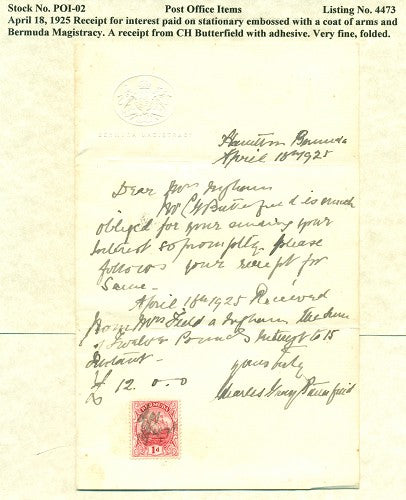 Stock No. POI-02 Post Office Items Listing No. 4473
April 18, 1925 Receipt for interest paid on stationary embossed with a coat of arms and
Bermuda Magistracy. A receipt from CH Butterfield with adhesive. Very fine, folded.
BERMUDA MAGISTRACY
Hamilton Bermuda
April 18th 1925
Dear Mrs Ingham
Mr CH Butterfield is much
obliged for your sending your
interest so promptly, please
follows your receipt for
same -
April 18th 1925 Received
from Mrs Field a Ingham the sum
of Twelve Pounds interest to 15
instant -
yours truly
£ 12. 0-0
Charles Gray
BERMUDA
1d